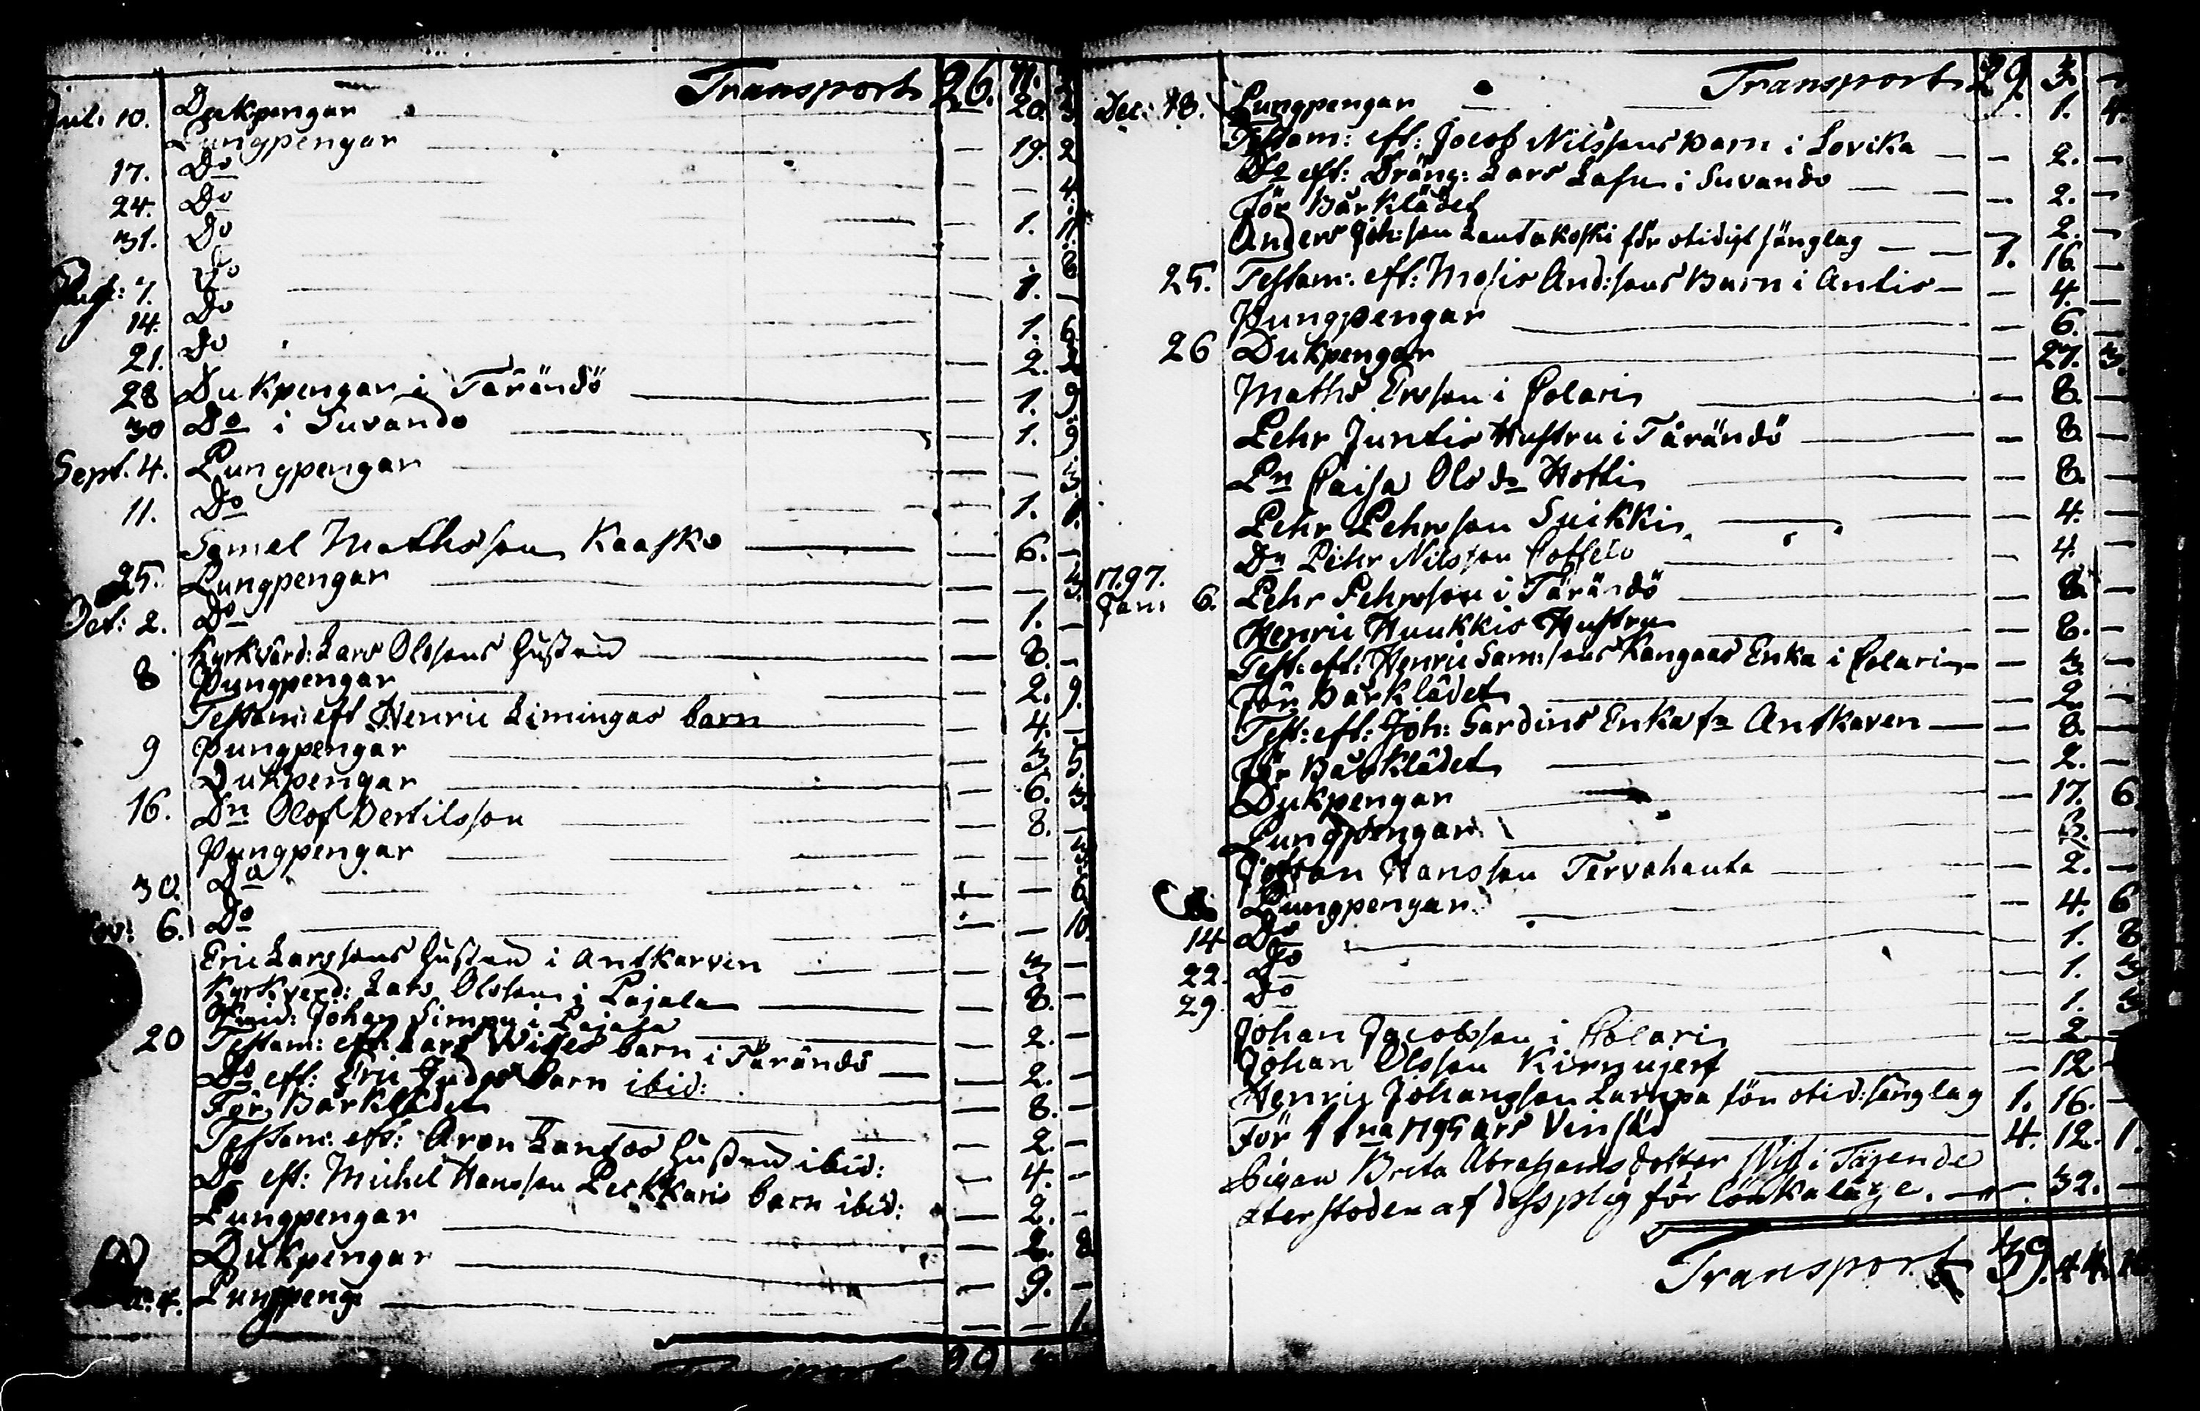 Transport 26. 11.
Jul: 10. Dukpengar — 20. 3.
Pungpengar — 19. 2
17. Do — — 4.
24. Do — 1. 11.
31. Do — — 8
Aug: 7. Do — 1. —
14. Do — 1. 6.
21. Do — 2. 2
28 Dukpengar i Tärändö — 1. 9
30 Do i Suvando — 1. 9
Sept. 4. Pungpengar — — 3.
11. Do — 1. 1.
Samel Mathsson Kaasko — 6. —
25. Pungpengar — — 3.
Oct: 2. Do — 1. —
Kyrkvärd: Lars Olssons Hustru — 8. —
8 Pungpengar — 2. 9.
Testam: eft Henric Limingas barn — 4. —
9 Pungpengar — 3 5.
Dukpengar — 6. 3.
16. Dn Olof Bertilsson — 8. —
Pungpengar — —
30. Do — — 6.
Nov: 6. Do — — 10.
Eric Larssons Hustru i Antkarven — 3. —
Kyrkverd: Lars Olsson i Pajala — 8. —
Johan Simpu i Pajala — 2. —
20 Testam: eft: Lars Wiges barn i Tärändö — 2. —
Do eft: Eric Judos barn ibid: — 8. —
För Barklädet — 2. —
Testam: eft: Aron Lantos Hustru ibid: — 4. —
Do eft: Michel Hansson Peckkaris barn ibid: — 2. —
Pungpengar — 2. 8
Dukpengar — 9. —
4. Pungpeng — — 1.
Transport 29
Transport 29 3. —
Dec: 18. Pungpengar — 1. 4.
Testam: eft: Jocob Nilssons Barn i Lovika — 2. —
Do eft: Dräng: Lars Lassu i Suvando — 2. —
För Bårklädet — 2. —
Anders Joh:son Lautakoski för otidigt sänglag — 1. 16. —
25. Testam: eft: Mosis And:sons Barn i Antis — 4. —
Pungpengar — 6. —
26 Dukpengar — 27. 3.
Maths Ersson i Colari — 8. —
Pehr Juntis Hustru i Tärändö — 8. —
Pn Caisa Olsdr Hotti — 8. —
Pehr Pehrsson Suikki — 4. —
Dn Pehr Nilsson — 4. —
1797.
Jan: 6. Pehr Pehrsson i Tärändö — 8. —
Henric Huukkis Hustru — 8. —
Test: eft: Henric Sam:sons Kangaas Enka i Colari — 3. —
För Barklädet — 2. —
Test: eft: Joh: Sardins Enka fr Antkaven — 8. —
För Barklädet — 2. —
Dukpengar — 17. 6
Pungpengar — 3. —
Johan Hansson Tervahauta — 2. —
8. Pungpengar — 4. 6
14 Do — 1. 8.
22. Do — 1. 3
29. Do — 1. 3
Johan Jacobsson i Colari — 2 —
Johan Olsson Kirnujerf — 12 —
Henric Johansson Lampa för otid: sänglag 1. 16. —
För 1795 års Vinsäd 4. 12. 1.
Pigan Brita Abrahams dotter i Tärende
återstoden af dess plig för lönkaläge. — 32. —
Transport 39. 44. 10